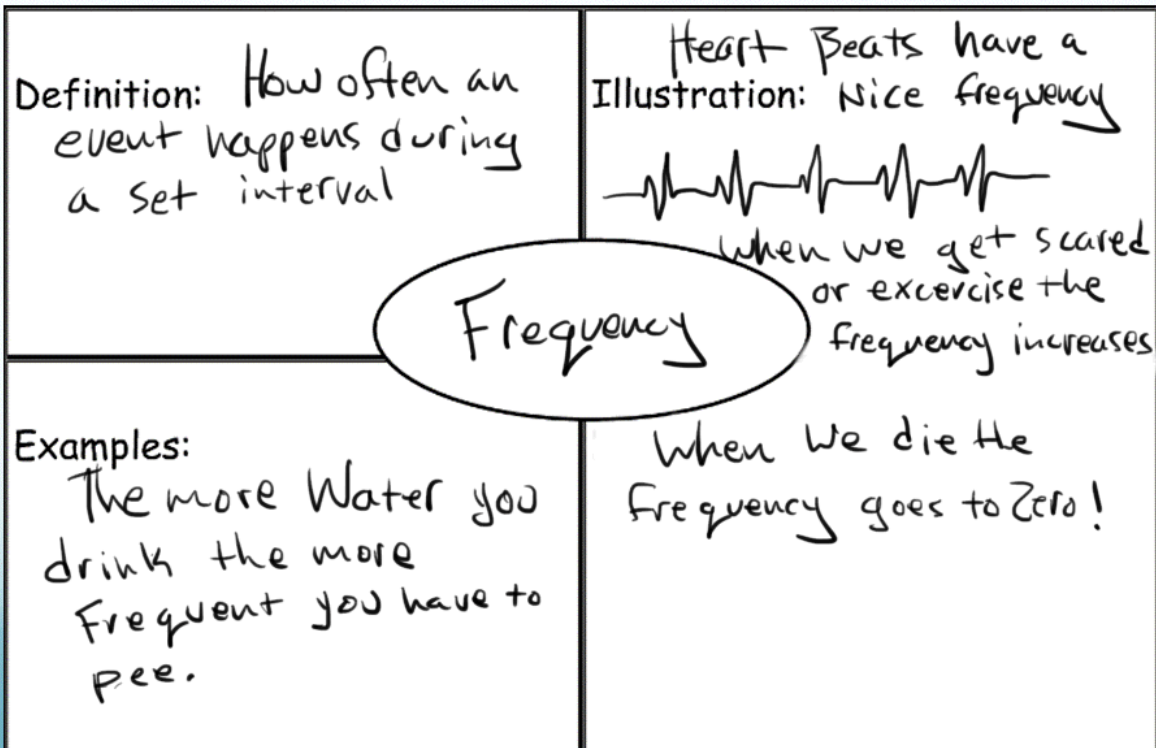 Definition: How often an
event happens during
a set interval
Heart Beats have a
Illustration: Nice frequency
when we get scared
or excercise the
frequency increases
Frequency
Examples:
The more Water you
drink the more
Frequent you have to
pee.
When We die the
Frequency goes to Zero!